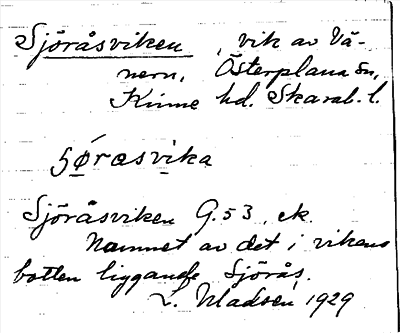 Sjöråsviken, vik av Vä-
nern, Österplana sn,
Kinne hd. Skarab. l.
Sjöråsviken G.53, ek.
Namnet av det i vikens
botten liggande Sjörås.
L. Madsén 1929